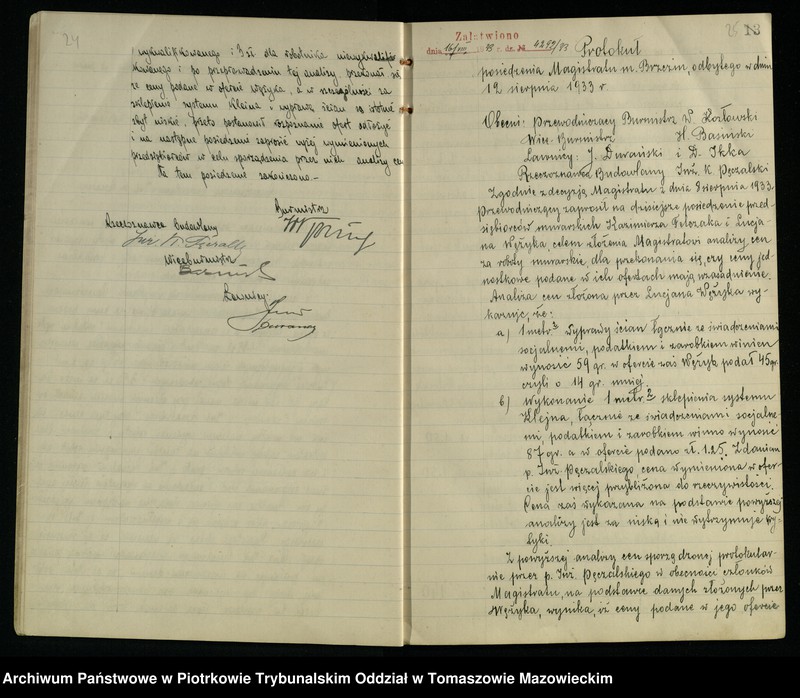 24
wykwalifikowanego i 3 zł dla robotnika niewykwalifi-
kowanego i po przeprowadzeniu tej analizy, przekonał się,
że ceny podane w ofercie Wężyka, a w szczególności za
sklepienia systemu Kleina i wyprawę ścian są istotnie
zbyt niskie, przeto postanowił rozpoznanie ofert odłożyć
i na następne posiedzenie zaprosić wyżej wymienionych
przedsiębiorców w celu sporządzenia przez nich analizy cen
Na tem posiedzenie zakończono.-
Burmistrz
Rzeczoznawca Budowlany
Wiceburmistrz
Ławnicy:
25 13
Załatwiono
dnia 16/VIII 1933 r. dz. № 4292/33
Protokuł
posiedzenia Magistratu m. Brzezin, odbytego w dniu
12 sierpnia 1933 r.
Obecni: Przewodniczący Burmistrz W. Kozłowski
Wice-Burmistrz H. Basiński
Ławnicy: J. Durański i D. Ikka
Rzeczoznawca Budowlany Inż. K. Pęczalski
Zgodnie z decyzją Magistratu z dnia 8 sierpnia 1933
Przewodniczący zaprosił na dzisiejsze posiedzenie przed-
siębiorców murarskich Kazimierza Felczaka i Lucja-
na Wężyka, celem złożenia Magistratowi analizy cen
za roboty murarskie dla przekonania się, czy ceny jed-
nostkowe podane w ich ofertach mają uzasadnienie.
Analiza cen złożona przez Lucjana Wężyka wy-
kazuje, że:
a) 1 metr.² wyprawy ścian łącznie ze świadczeniami
socjalnemi, podatkiem i zarobkiem winien
wynosić 59 gr. w ofercie zaś Wężyk podał 45 gr.
czyli o 14 gr. mniej.
b) Wykonanie 1 metr.² sklepienia systemu
Klejna, łącznie ze świadczeniami socjalne-
mi, podatkiem i zarobkiem winno wynosić
87 gr. a w ofercie podano zł. 1.25. Zdaniem
p. Inż. Pęczalskiego cena wymieniona w ofer-
cie jest więcej przybliżona do rzeczywistości.
Cena zaś wykazana na podstawie powyższej
analizy jest za niską i nie wytrzymuje kry-
tyki.
Z powyższej analizy cen sporządzonej protokular-
nie przez p. Inż. Pęczalskiego w obecności członków
Magistratu, na podstawie danych złożonych przez
Wężyka, wynika, iż ceny podane w jego ofercie
Archiwum Państwowe w Piotrkowie Trybunalskim Oddział w Tomaszowie Mazowieckim